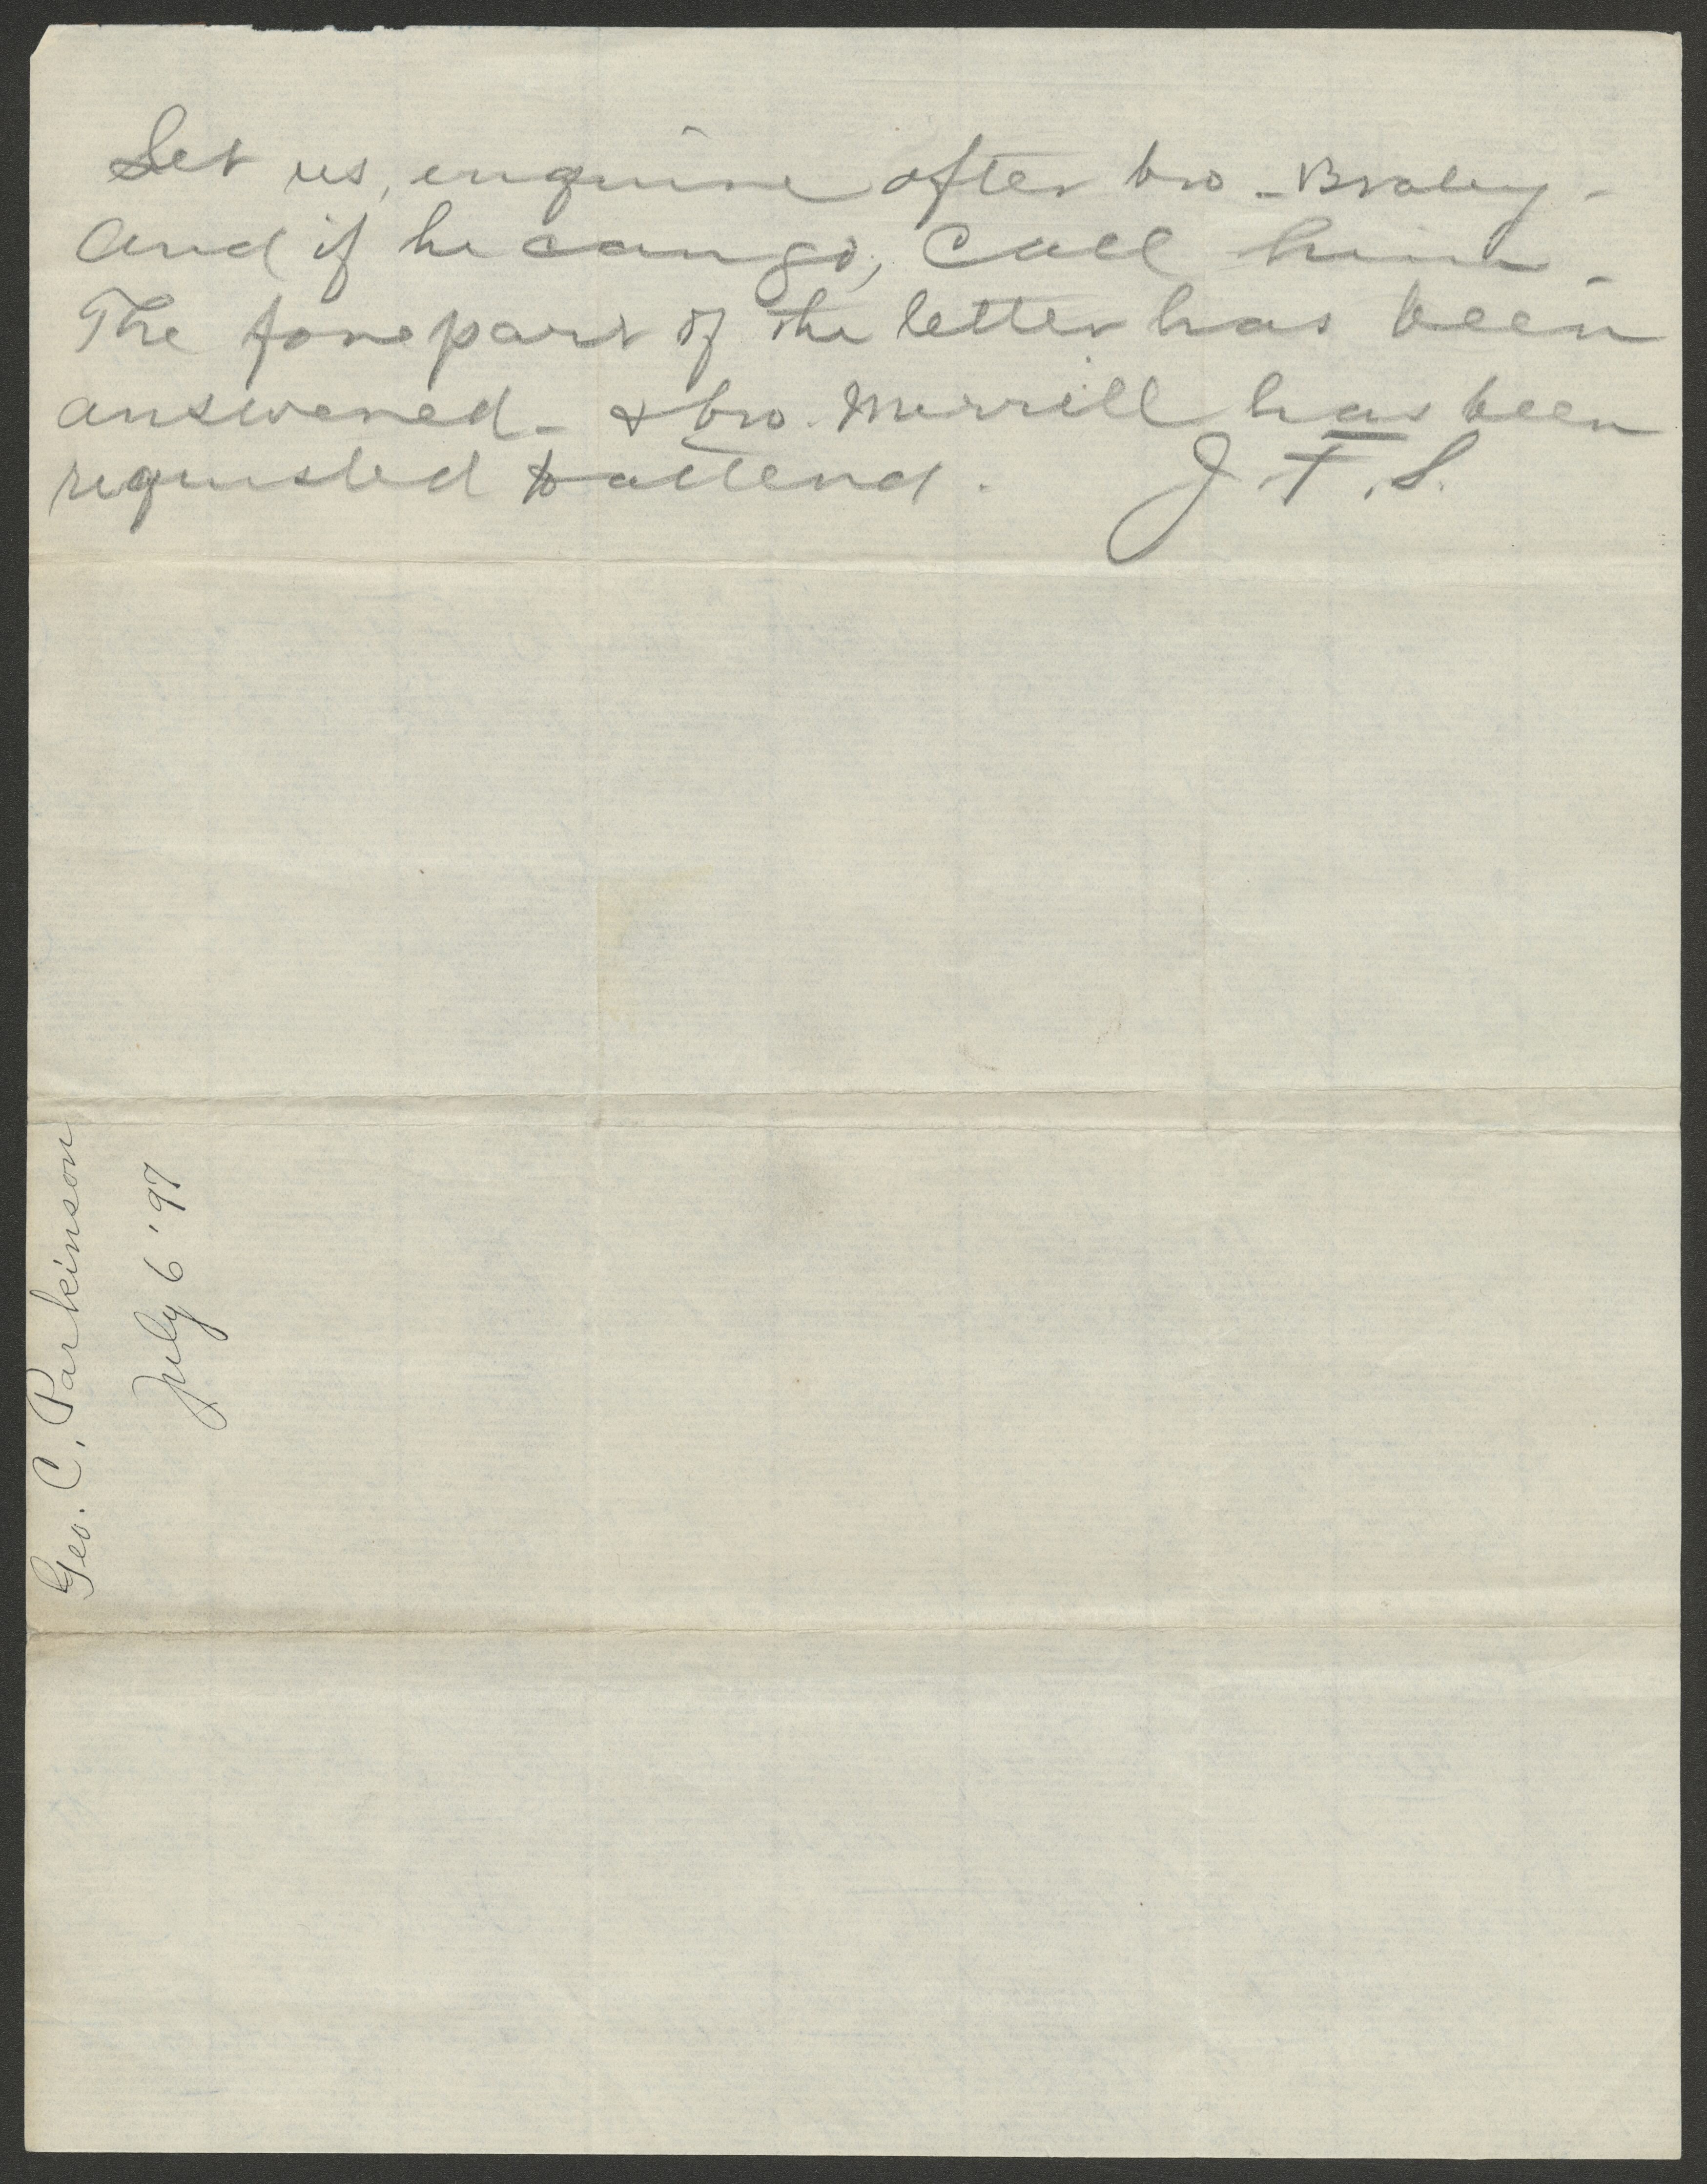 Let us, enquire after bro - Braley -
And if he can go, Call him -
The fore part of the letter has been
answered - & bro. Merrill has been
requested to attend. J. F. S.
Geo. C. Parkinson
July 6 '97